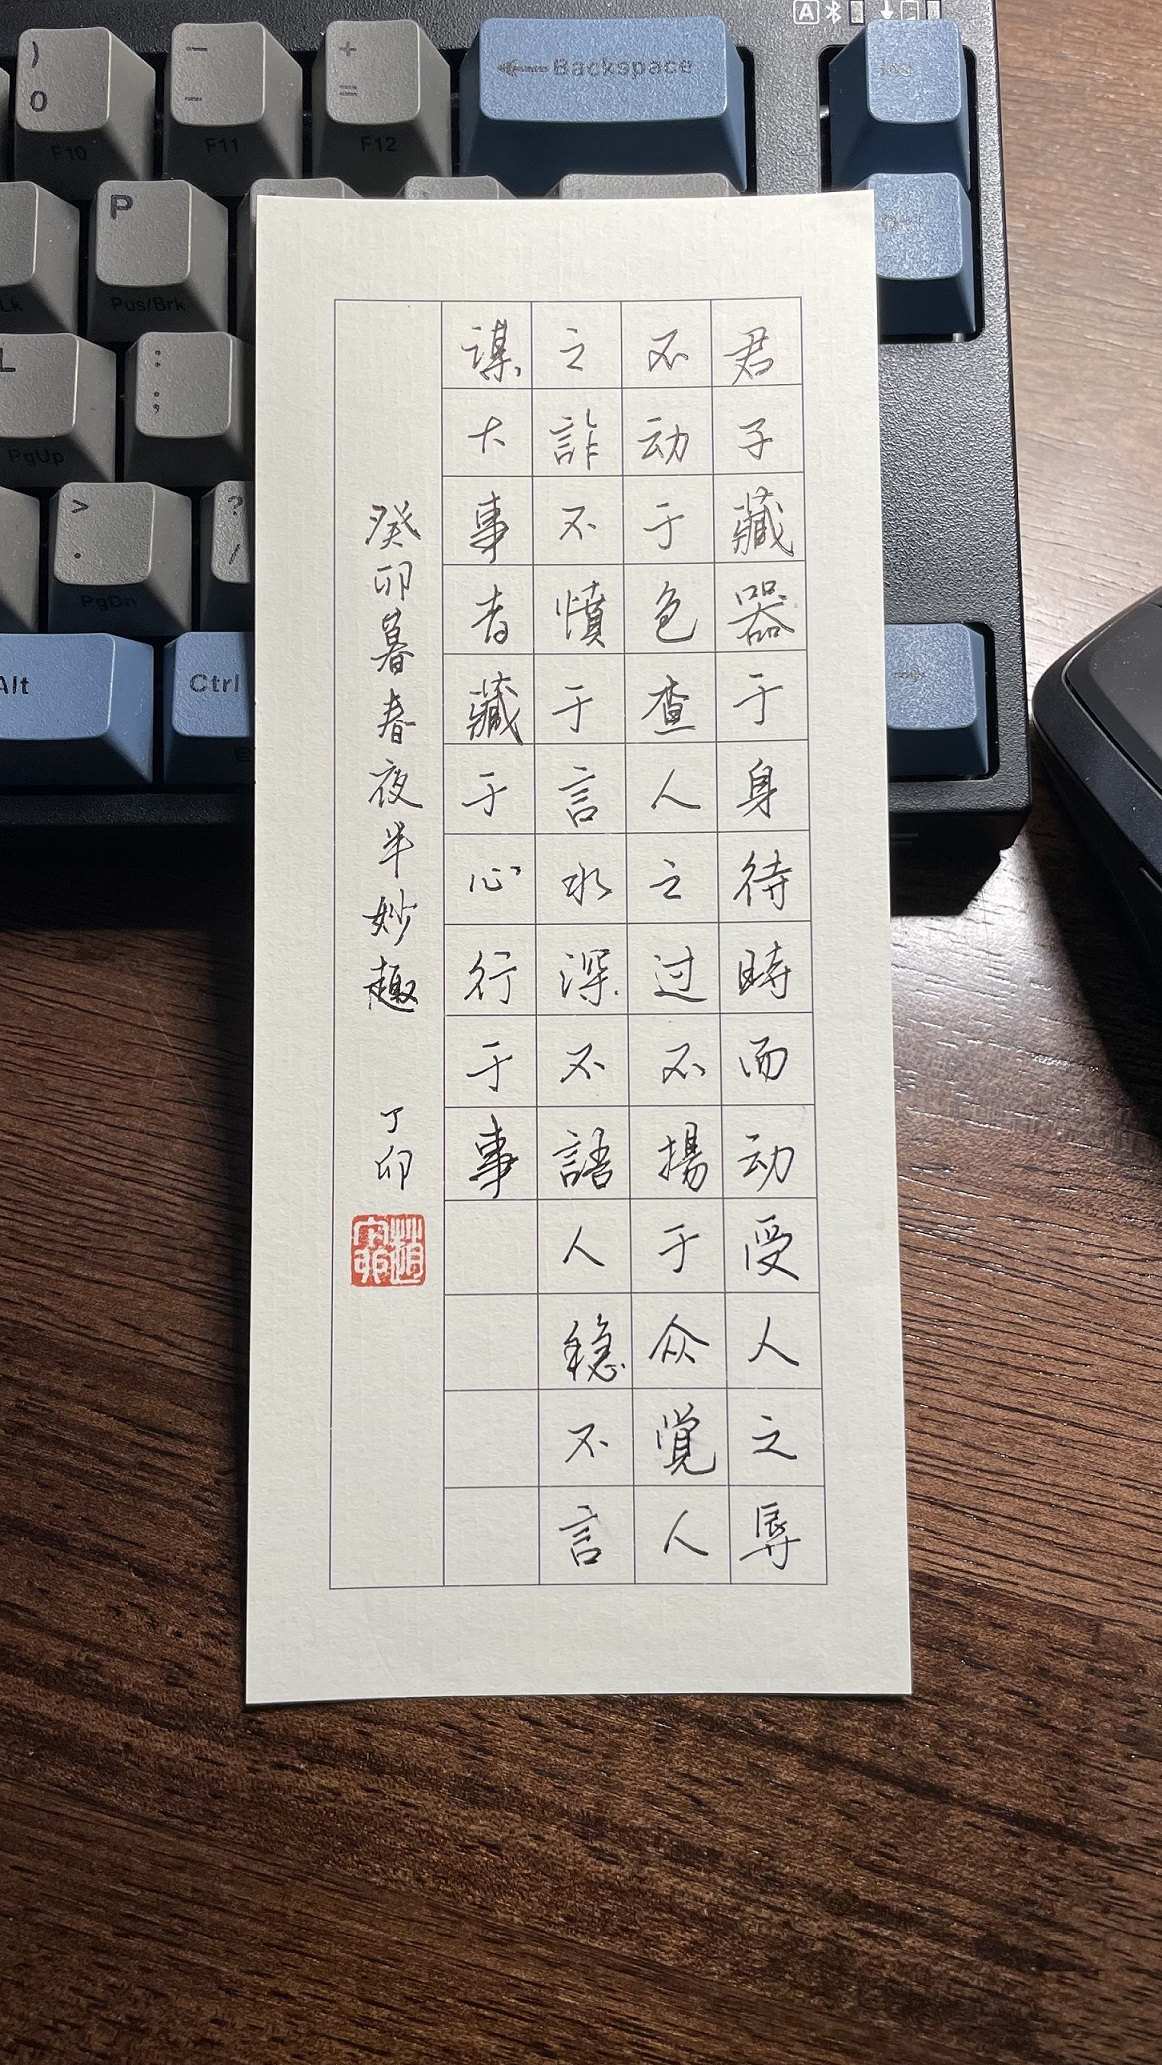 君子藏器于身待時而动受人之辱
不动于色查人之过不揚于众覚人
之詐不憤于言水深不語人穏不言
謀大事者藏于心行于事
癸卯暮春夜半妙趣 丁卯
A
) 0 F10
— - F11
+ = F12
Backspace
P Pus/Brk
Lk
L PgUp
: ;
> . PgDn
? /
Alt
Ctrl